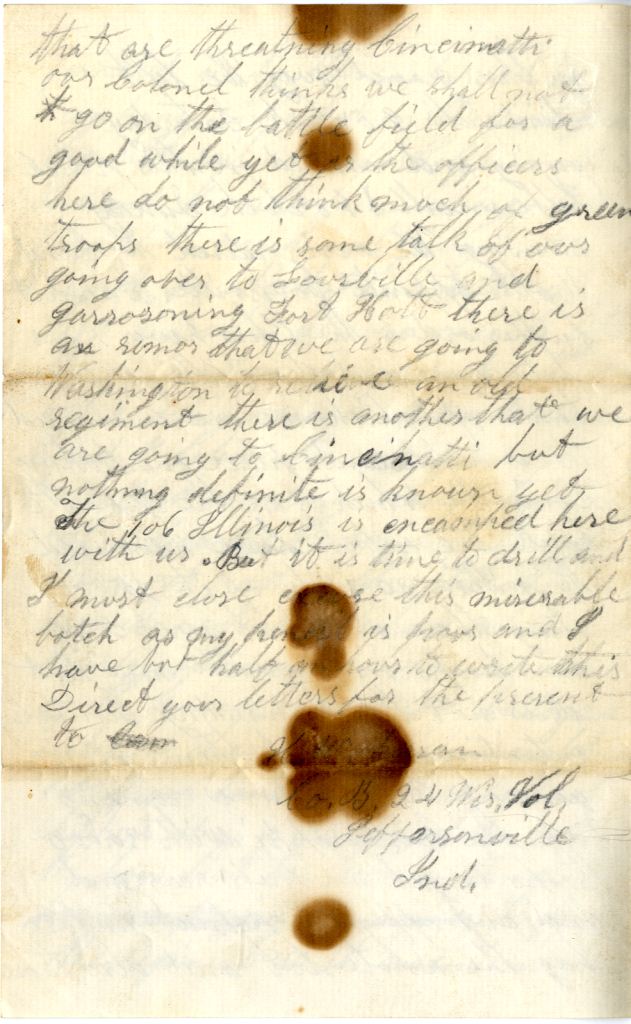 that are threatning Cincinatti
our Colonel thinks we shall not
go on the battle field for a
good while yet as the officers
here do not think much of green
troops there is some talk of our
going over to Louisville and
garrosoning Fort Holt there is
a rumor that we are going to
Washington to relieve an old
regiment there is another that we
are going to Cincinatti but
nothing definite is known yet
The 106 Illinois is encamped here
with us. But it is time to drill and
I must close this miserable
botch as my pencil is poor and I
have but half an hour to write this
Direct your letters for the present
to
Co. B. 24 Wis. Vol.
Jeffersonville
Ind.